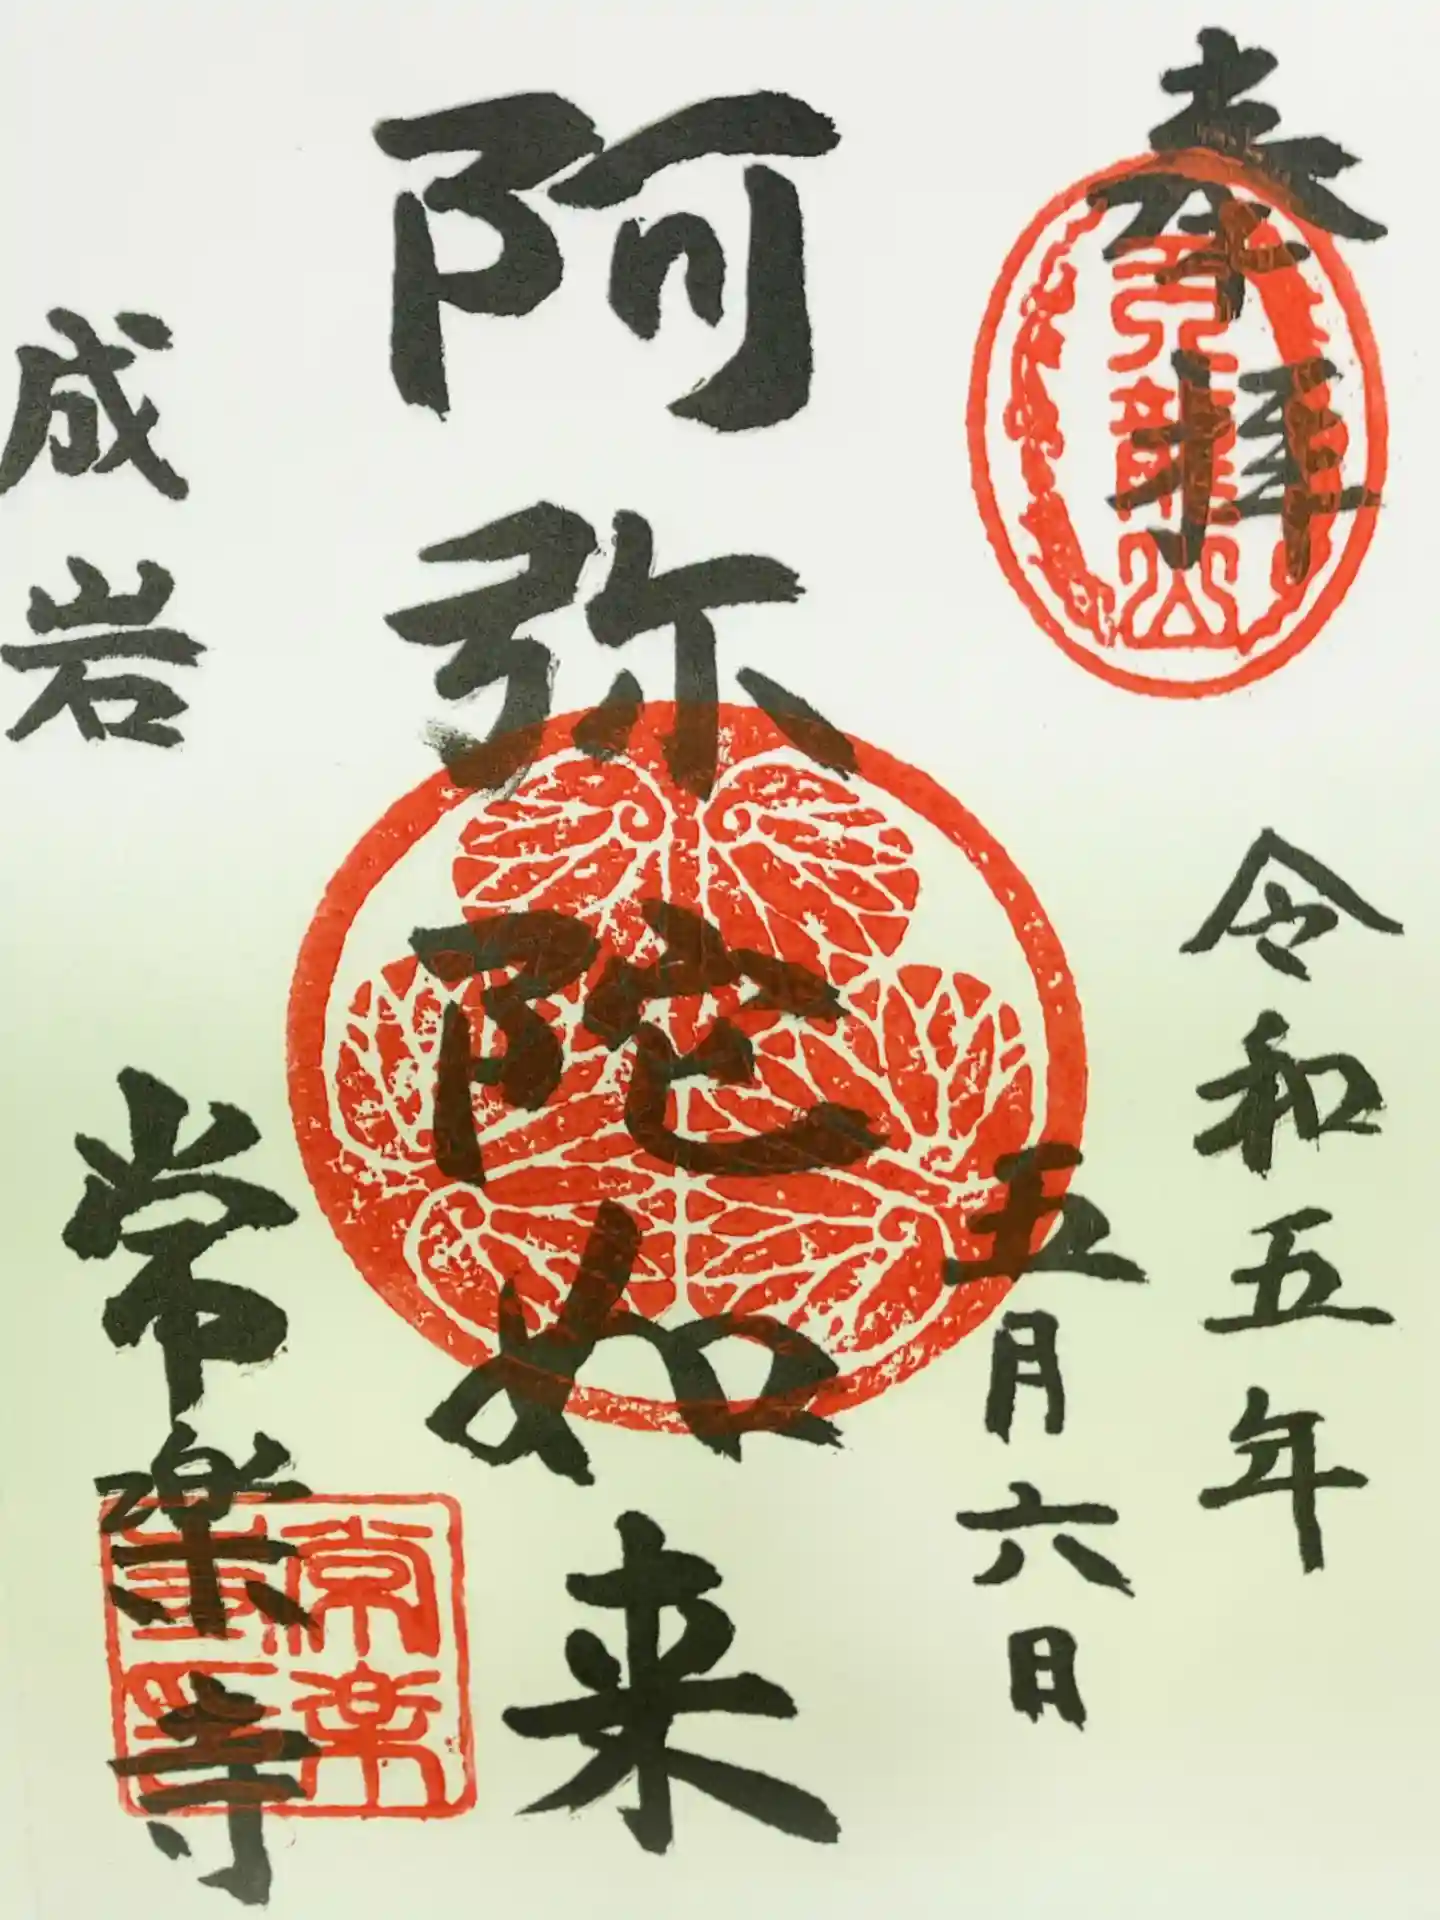 奉拝
令和五年
五月六日
阿弥陀如来
成岩
常楽寺